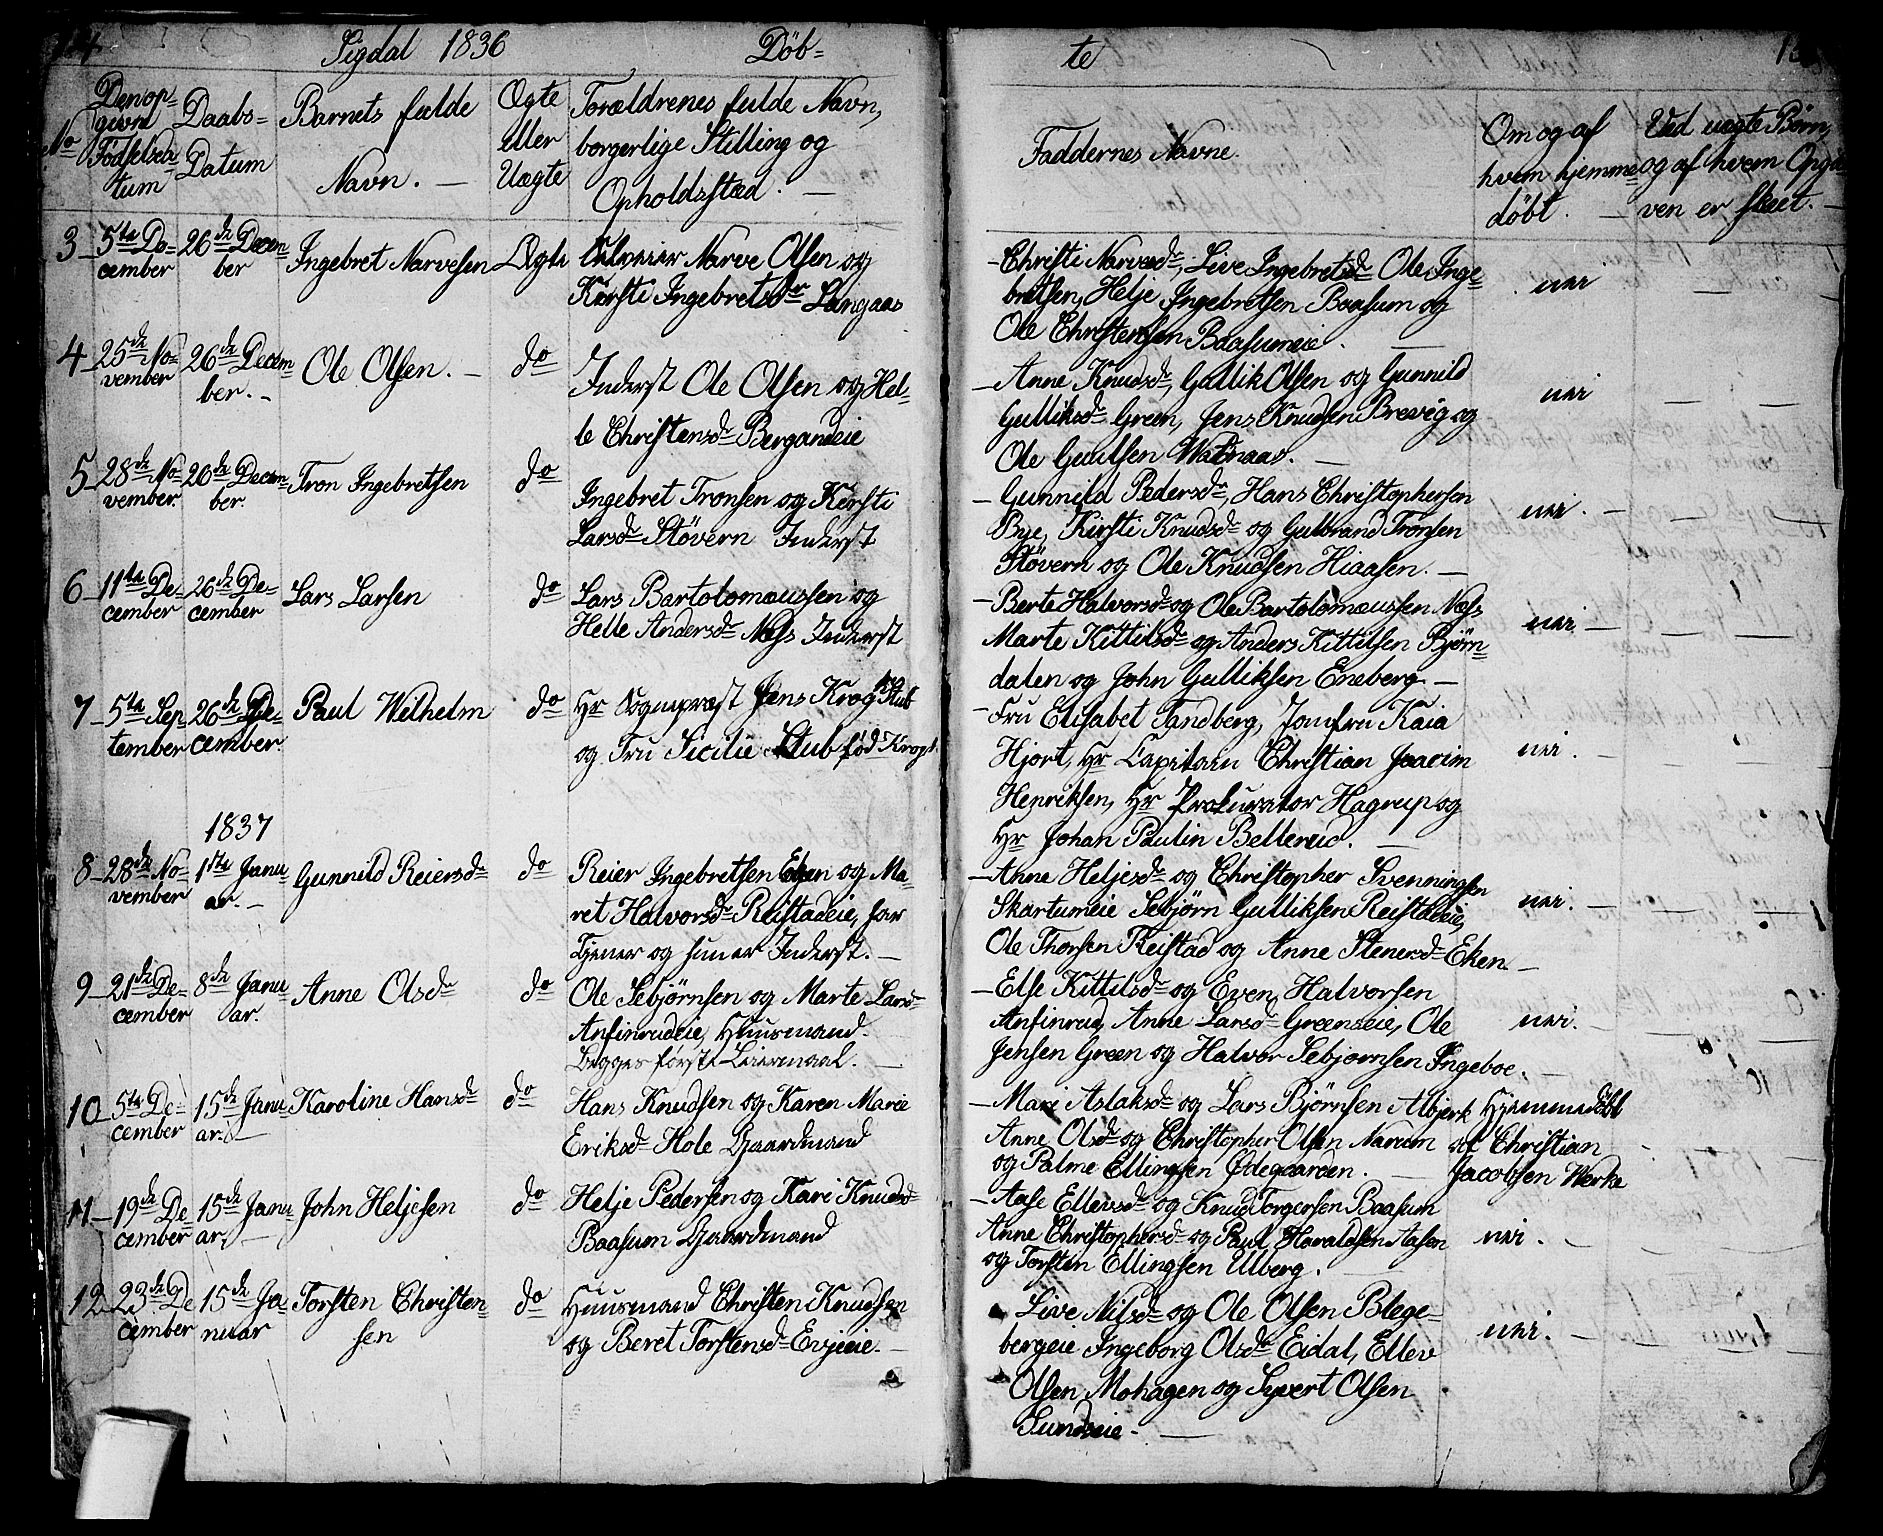 14 Sigdal 1836 Döb-
te
No
Den op-
givne
Födselsda-
tum
Daabs-
Datum
Barnets fulde
Navn. —
Ægte
eller
Uægte
Forældrenes fulde Navn,
borgerlige Stilling og
Opholdsstæd. —
Faddernes Navne.
Om og af
hvem hjemme-
döbt. —
Ved uægte Börn,
og af hvem Opgi-
ven er skeet. —
3 5te De-
cember
26de Decem
ber
Ingebret Narvesen
Ægte
Narve Olsen og
Kirsti Ingebretsdr Langaas
Christi Narvesdr, Live Ingebretsdr Ole Inge-
bretsen, Helje Ingebretsen Baasum og
Ole Christensen Baasumeie. —
nei
4 25de No-
vember
26de Decem
ber. -
Ole Olsen. -
do
Inderst Ole Olsen og Hel-
le Christensdr Bergandeie
Anne Knudsdr, Gullik Olsen og Gunnild
Gulliksdr Green, Jens Knudsen Brevig og
Ole Guulsen Watnaas. —
nei
5 28de No-
vember.
26de Decem
ber.
Tron Ingebretsen
do
Ingebret Tronsen og Kirsti
Larsdr Stövern Inderst
Gunnild Pedersdr, Hans Christophersen
Bye, Kirsti Knudsdr og Gulbrand Tronsen
Stövern og Ole Knudsen Hiaasen. —
nei. —
6 11te De-
cember
26de De-
cember
Lars Larsen
do
Lars Bartolomæussen og
Helle Andersdr Næss Inderst
Berte Halvorsdr og Ole Bartolomæussen Næss
Marte Kittilsdr og Anders Kittilsen Björn-
dalen og John Gulliksen Eneberg. —
nei. —
7 5te Sep
tember
26de De-
cember
Paul Wilhelm
do
Hr Sognepræst Jens Krog Stub
og Fru Sicilie Stub född Krogh
Fru Elisabet Tandberg, Jomfru Kaia
Hjort, Hr Capitain Christian Joacim
Henriksen, Hr Prokurator Hagrup og
Hr Johan Paulin Bellerud. —
nei. —
1837
8 28de No-
vember
1ste Janu-
ar. —
Gunnild Reiersdr
do
Reier Ingebretsen Eken og Ma-
ret Halvorsdr Reistadeie, far
Tjener og hun er Inderst. —
Anne Heljesdr og Christopher Svenningsen
Skartumeie Sebjörn Gulliksen Reistadeie,
Ole Thorsen Reistad og Anne Stenersdr Eken. —
nei. —
9 21de De-
cember
8de Janu-
ar.
Anne Olsdr
do
Ole Sebjörnsen og Marte Larsdr
Anfinrudeie, Huusmand.
Begges förste Leiermaal. —
Else Kittilsdr og Even Halvorsen
Anfinrud, Anne Larsdr Greenseie, Ole
Jensen Green og Halvor Sebjornsen Ingeboe. —
nei. —
10 5te De-
cember
15de Janu-
ar. —
Karoline Hansdr
do
Hans Knudsen og Karen Marie
Eriksdr Hole Gaardmand
Mari Aslaksdr og Lars Björnsen Albjerk
Anne Olsdr og Christopher Olsen Narum
og Palme Ellingsen Ödegaarden. —
Hjemmedöbt
af Christian
Jacobsen Werke
11 19de De-
cember
15de Janu-
ar, —
John Heljesen
do
Helje Pedersen og Kari Knudsdr
Baasum Gaardmand
Aase Ellevsdr og Knud Torgersen Baasum
Anne Christophersdr og Paul Haraldsen Aasen
og Torsten Ellingsen Ulberg. —
nei. —
12 23de De
cember
15de Ja-
nuar
Torsten Christen-
sen
do
Huusmand Christen Knudsen
og Beret Torstensdr Evjeeie. —
Live Nilsdr og Ole Olsen Blege-
bergeie Ingeborg Olsdr Eidal, Ellev
Olsen Mohagen og Syvert Olsen
Sundseie. —
nei. —